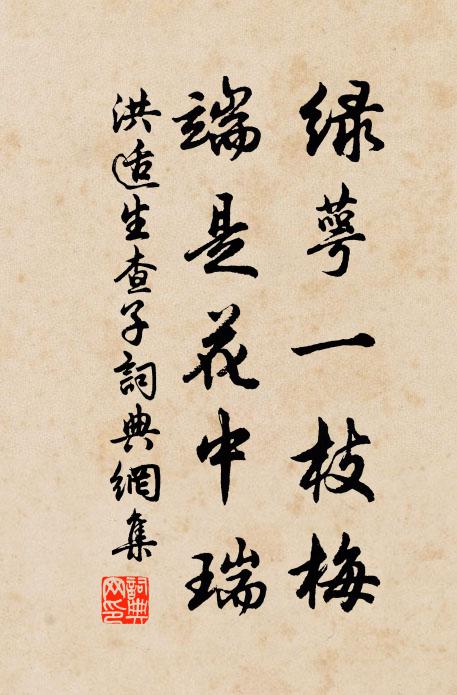 绿萼一枝梅
端是花中瑞
洪适生查子詞典網集
詞典網印